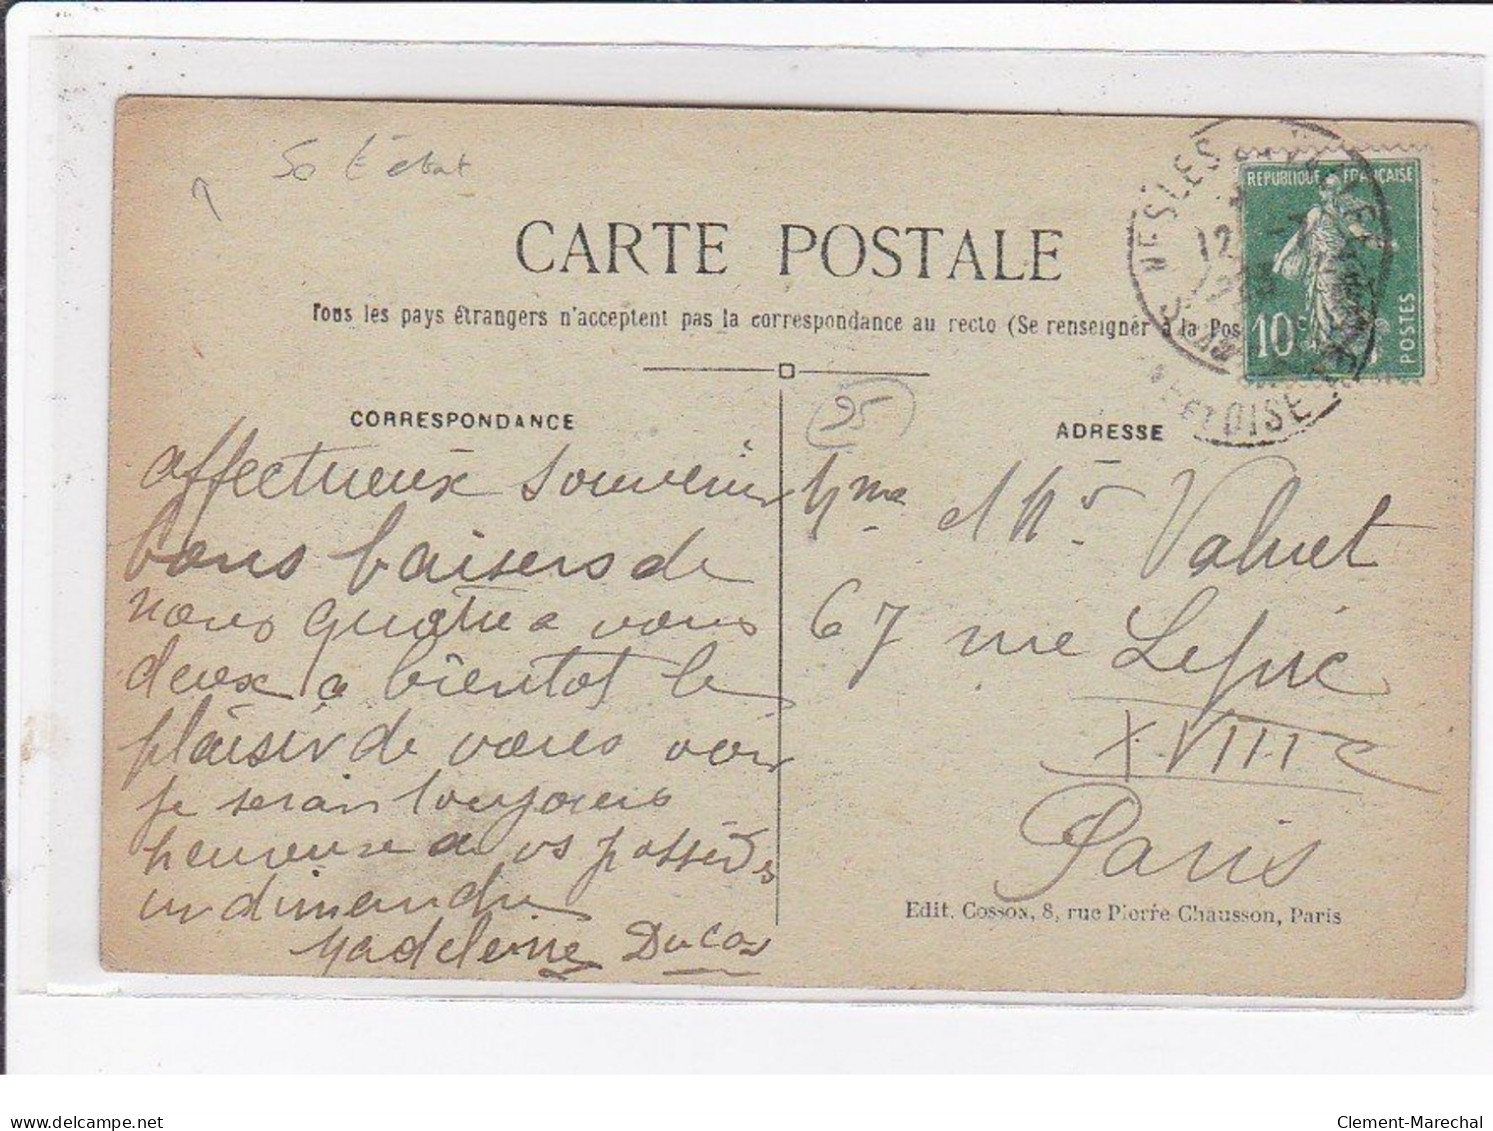 50 t. état
CARTE POSTALE
Tous les pays étrangers n'acceptent pas la correspondance au recto (Se renseigner à la Pos
RÉPUBLIQUE FRANÇAISE
10c
POSTES
NESLES LA VALLEE
12
SEINE ET OISE
25
CORRESPONDANCE
affectueux souvenir
bons baisers de
nous quatre a vous
deux a bientot le
plaisir de vous voir
je serais toujours
heureuse de vs posséder
un dimanche
Madeleine Ducos
ADRESSE
Mme et Mr Valuet
67 rue Lepic
XVIIIe
Paris
Edit. Cosson, 8, rue Pierre Chausson, Paris
delcampe.net
Clement-Marechal